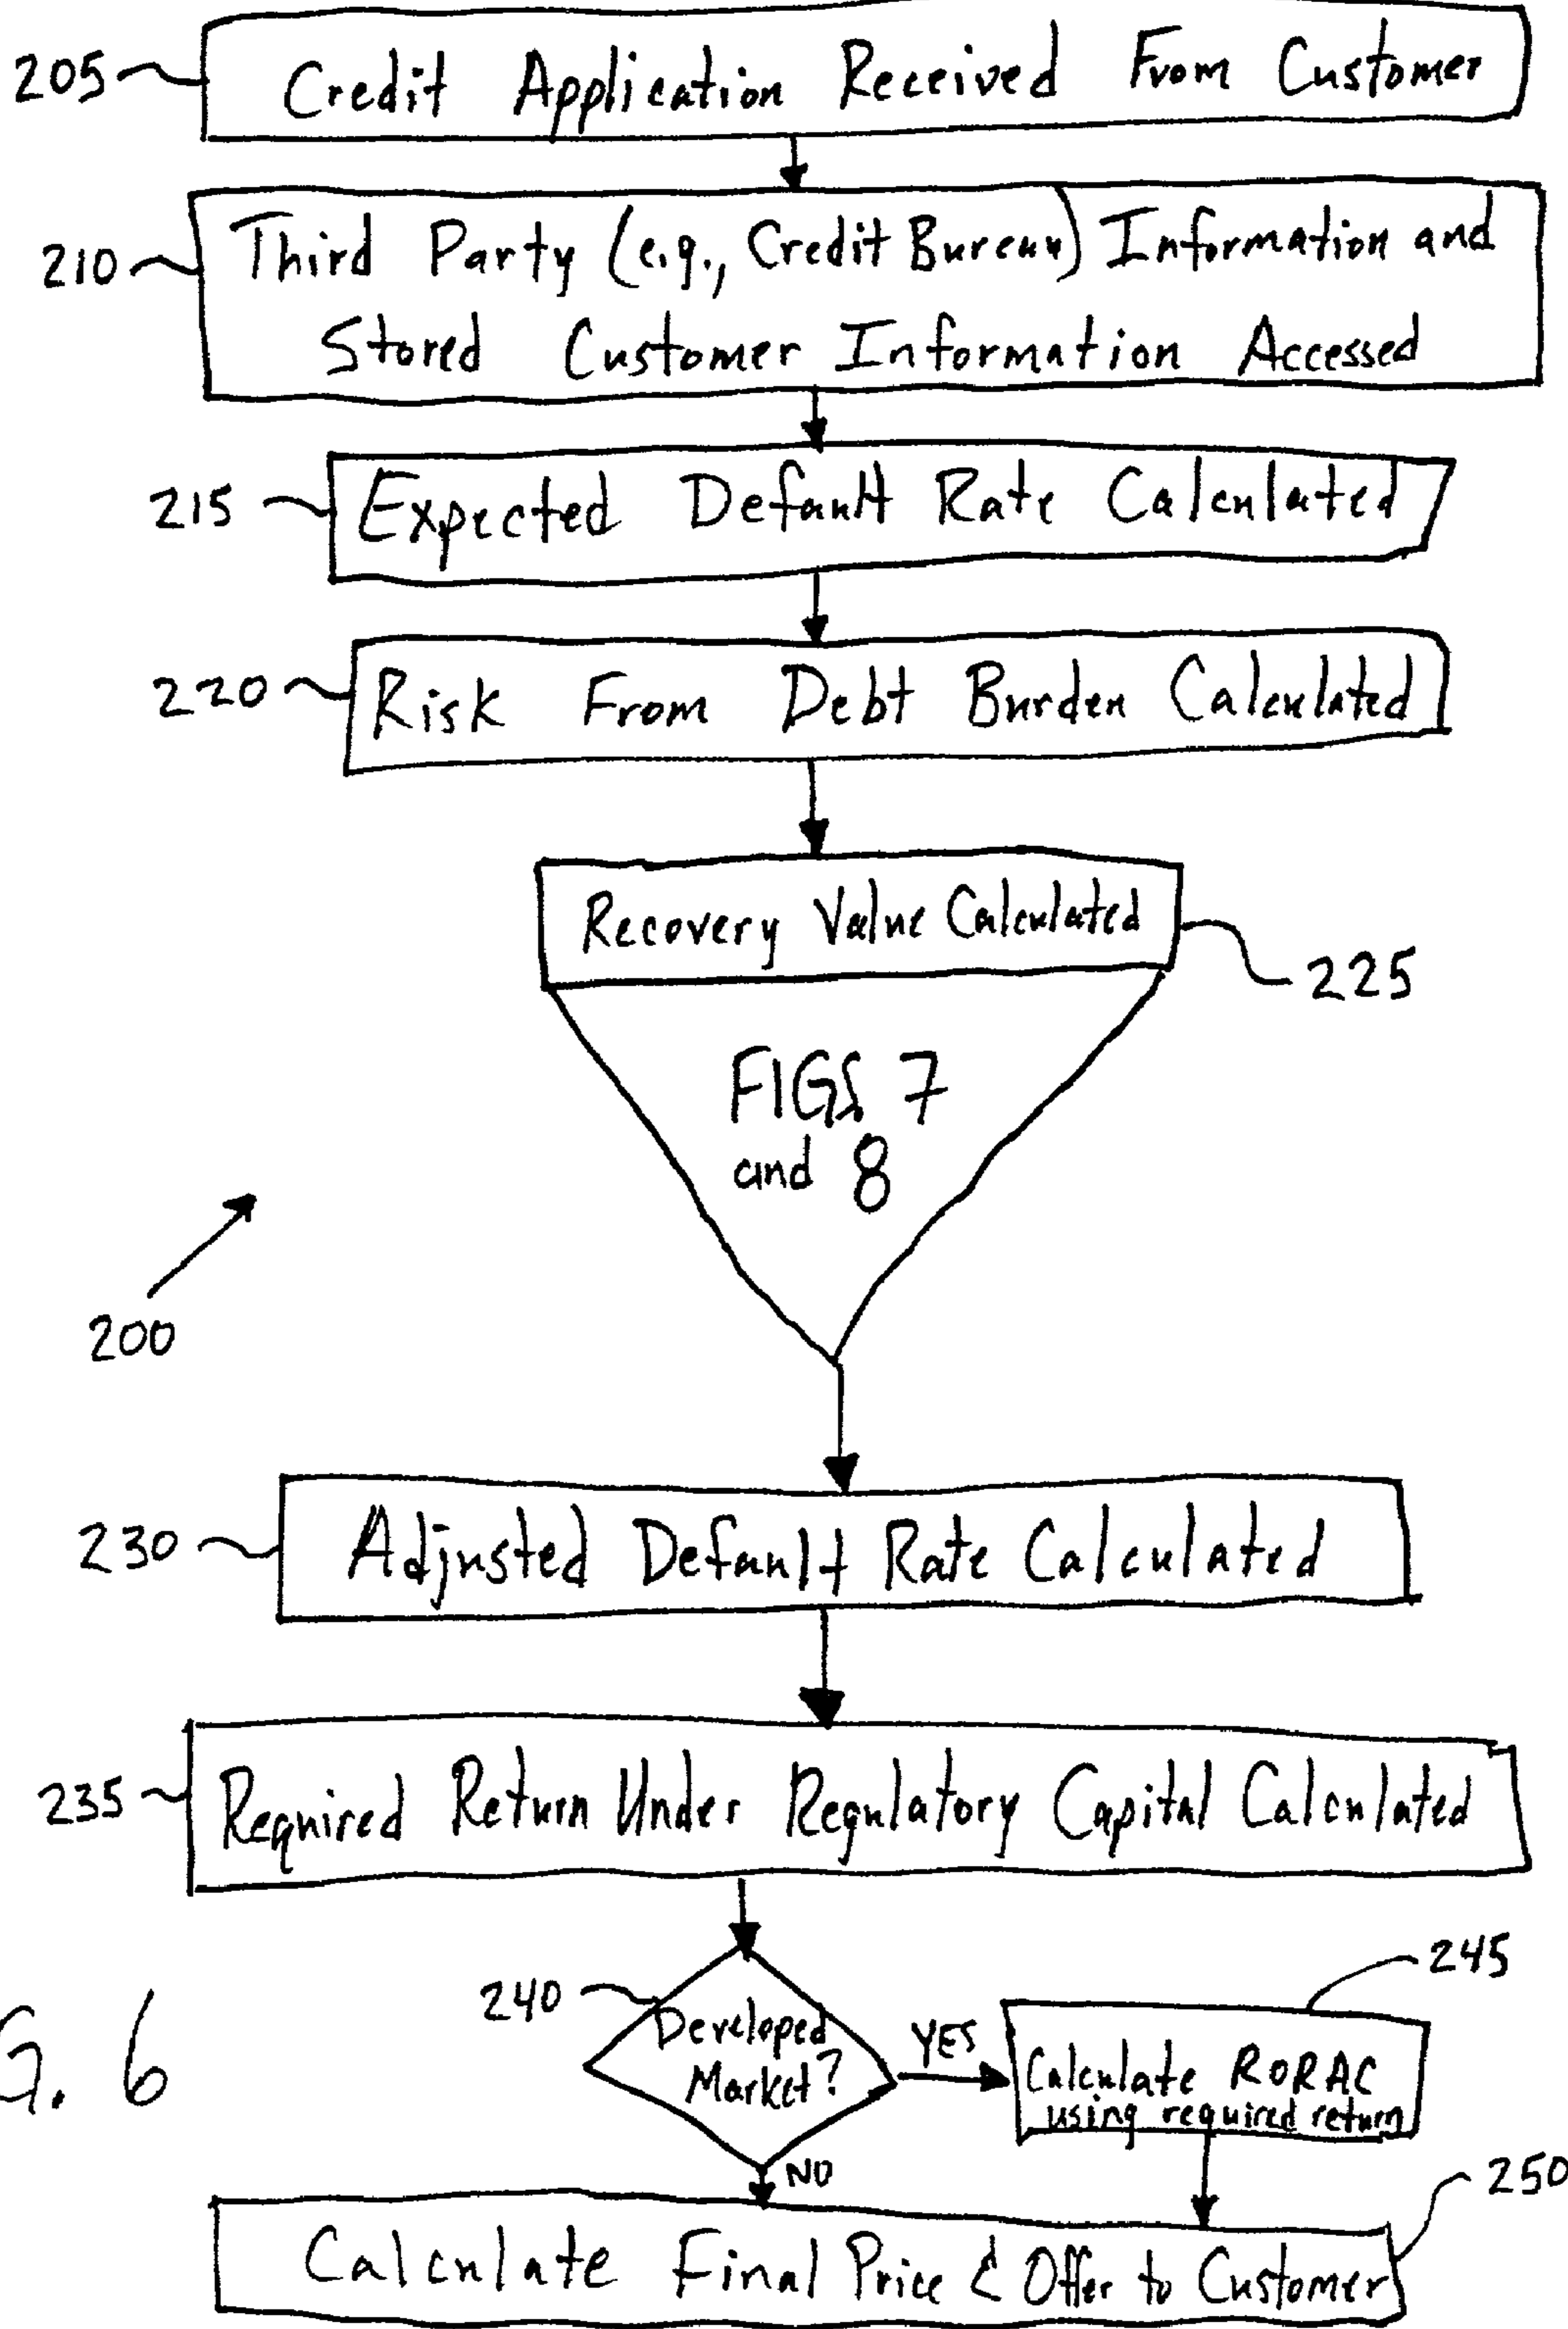 205 Credit Application Received From Customer
210 Third Party (e.g., Credit Bureau) Information and
Stored Customer Information Accessed
215 Expected Default Rate Calculated
220 Risk From Debt Burden Calculated
Recovery Value Calculated
225
FIGS 7
and 8
200
230 Adjusted Default Rate Calculated
235 Required Return Under Regulatory Capital Calculated
245
240 Developed
Market?
YES
Calculate RORAC
using required return
G. 6
NO
250
Calculate Final Price & Offer to Customer